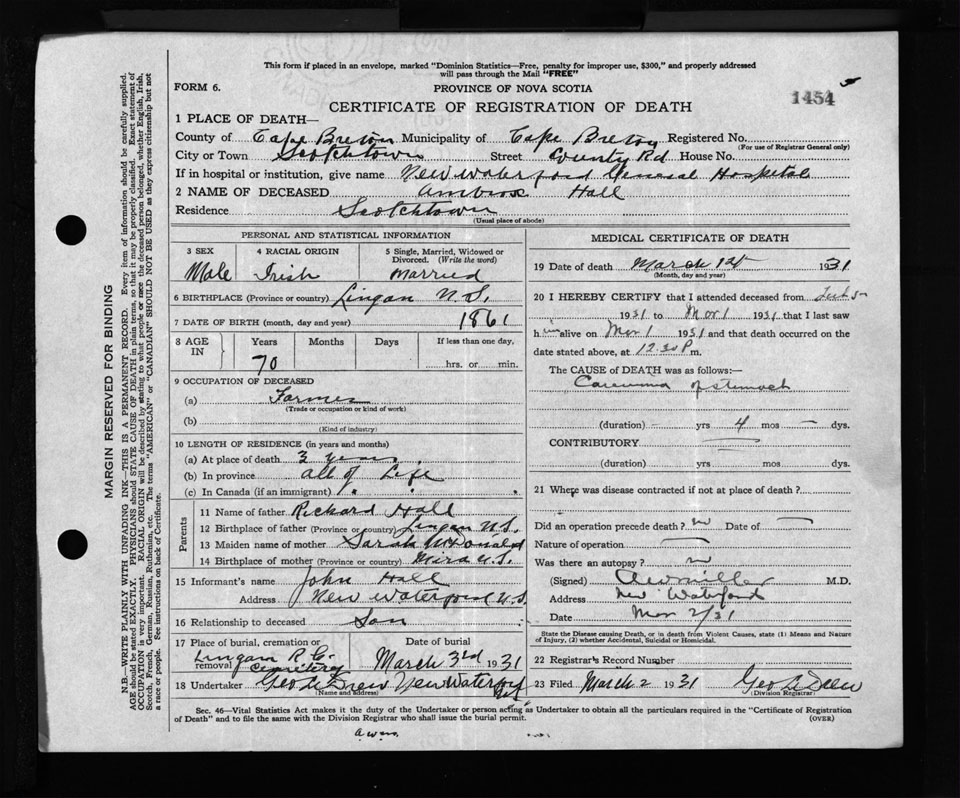 This form if placed in an envelope, marked "Dominion Statistics—Free, penalty for improper use, $300," and properly addressed
will pass through the Mail "FREE"
FORM 6.
PROVINCE OF NOVA SCOTIA
1454
CERTIFICATE OF REGISTRATION OF DEATH
1 PLACE OF DEATH—
County of Cape Breton Municipality of Cape Breton Registered No.
(For use of Registrar General only)
City or Town Scotchtown Street County Rd House No.
If in hospital or institution, give name New Waterford General Hospital
2 NAME OF DECEASED Ambrose Hall
Residence Scotchtown
(Usual place of abode)
PERSONAL AND STATISTICAL INFORMATION
3 SEX 4 RACIAL ORIGIN 5 Single, Married, Widowed or Divorced. (Write the word)
Male Irish Married
6 BIRTHPLACE (Province or country) Lingan N.S.
7 DATE OF BIRTH (month, day and year) 1861
8 AGE IN Years Months Days If less than one day,
70 hrs. or min.
9 OCCUPATION OF DECEASED
(a) Farmer
(Trade or occupation or kind of work)
(b)
(Kind of industry)
10 LENGTH OF RESIDENCE (in years and months)
(a) At place of death 3 years
(b) In province all of Life
(c) In Canada (if an immigrant)
Parents
11 Name of father Richard Hall
12 Birthplace of father (Province or country) Lingan N.S.
13 Maiden name of mother Sarah McDonald
14 Birthplace of mother (Province or country) Mira N.S.
15 Informant's name John Hall
Address New Waterford N.S.
16 Relationship to deceased Son
17 Place of burial, cremation or removal Lingan R.C. Cemetery Date of burial March 3rd 1931
18 Undertaker Geo A Drew New Waterford
(Name and address)
MEDICAL CERTIFICATE OF DEATH
19 Date of death March 1st 1931
(Month, day and year)
20 I HEREBY CERTIFY that I attended deceased from
1931 to Mar 1 1931 that I last saw
him alive on Mar 1 1931 and that death occurred on the
date stated above, at 12.30 P m.
The CAUSE OF DEATH was as follows:—
of stomach
(duration) — yrs 4 mos — dys.
CONTRIBUTORY
(duration) yrs. mos. dys.
21 Where was disease contracted if not at place of death?
Did an operation precede death? no Date of —
Nature of operation —
Was there an autopsy? no
(Signed) Miller M.D.
Address New Waterford
Date Mar 2/31
State the Disease causing Death, or in death from Violent Causes, state (1) Means and Nature
of Injury, (2) whether Accidental, Suicidal or Homicidal.
22 Registrar's Record Number
23 Filed March 2 1931 Geo A Drew
(Division Registrar)
Sec. 46—Vital Statistics Act makes it the duty of the Undertaker or person acting as Undertaker to obtain all the particulars required in the "Certificate of Registration
of Death" and to file the same with the Division Registrar who shall issue the burial permit.
(OVER)
MARGIN RESERVED FOR BINDING
N.B—WRITE PLAINLY WITH UNFADING INK—THIS IS A PERMANENT RECORD. Every item of information should be carefully supplied.
AGE should be stated EXACTLY. PHYSICIANS should STATE CAUSE OF DEATH in plain terms, so that it may be properly classified. Exact statement of
OCCUPATION is very important. RACIAL ORIGIN will be described by stating to what people or race the deceased person belonged, whether English, Irish,
Scotch, French, German, Russian, Ruthenian, etc. The terms "AMERICAN" or "CANADIAN" SHOULD NOT BE USED as they express citizenship but not
a race or people. See instructions on back of Certificate.